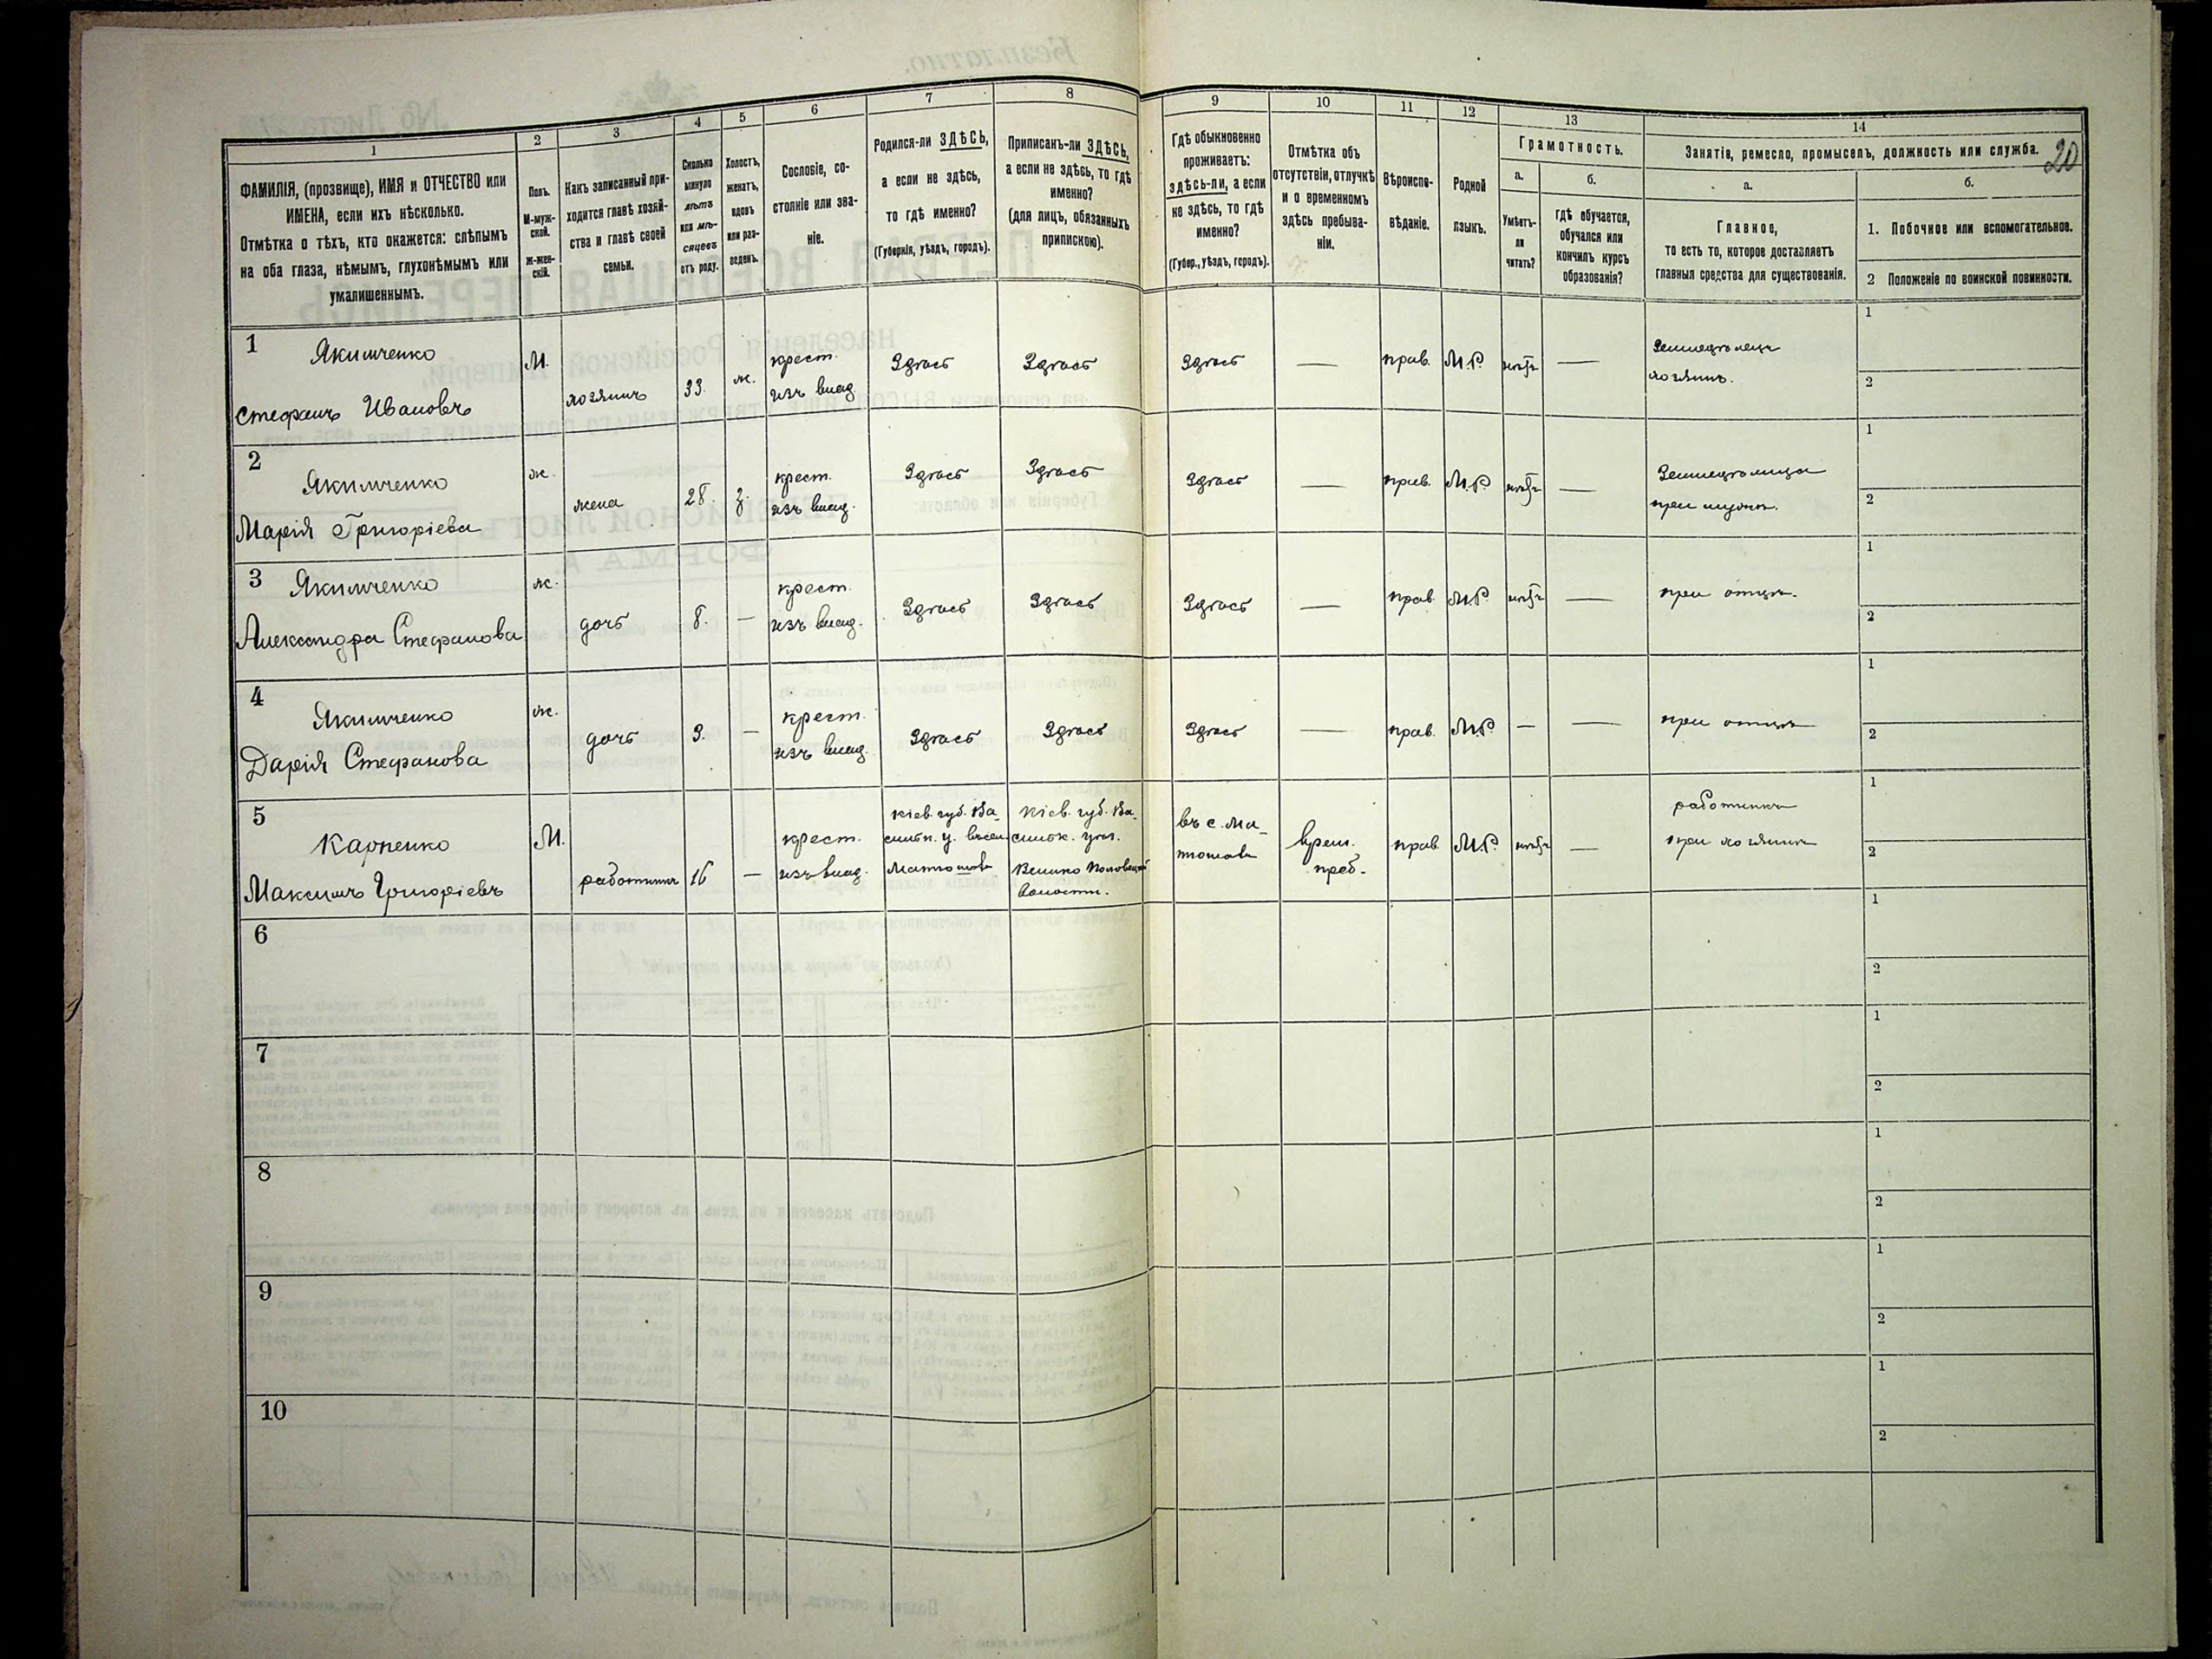 20
1 2 3 4 5 6 7 8 9 10 11 12 13 14
ФАМИЛІЯ, (прозвище), ИМЯ и ОТЧЕСТВО или
ИМЕНА, если ихъ нѣсколько.
Отмѣтка о тѣхъ, кто окажется: слѣпымъ
на оба глаза, нѣмымъ, глухонѣмымъ или
умалишеннымъ.
Полъ.
М-муж-
ской.
Ж-жен-
скій.
Какъ записанный при-
ходится главѣ хозяй-
ства и главѣ своей
семьи.
Сколько
минуло
лѣтъ
или мѣ-
сяцевъ
отъ роду.
Холостъ,
женатъ,
вдовъ
или раз-
веденъ.
Сословіе, со-
стояніе или зва-
ніе.
Родился-ли ЗДѢСЬ,
а если не здѣсь,
то гдѣ именно?
(Губернія, уѣздъ, городъ).
Приписанъ-ли ЗДѢСЬ,
а если не здѣсь, то гдѣ
именно?
(для лицъ, обязанныхъ
припискою).
Гдѣ обыкновенно
проживаетъ:
здѣсь-ли, а если
не здѣсь, то гдѣ
именно?
(Губер., уѣздъ, городъ).
Отмѣтка объ
отсутствіи, отлучкѣ
и о временномъ
здѣсь пребыва-
ніи.
Вѣроиспо-
вѣданіе.
Родной
языкъ.
Грамотность.
а.
Умѣетъ-
ли
читать?
б.
Гдѣ обучается,
обучался или
кончилъ курсъ
образованія?
Занятія, ремесло, промыселъ, должность или служба.
а.
Главное,
то есть то, которое доставляетъ
главныя средства для существованія.
б.
1. Побочное или вспомогательное.
2 Положеніе по воинской повинности.
1
Якимченко
Стефанъ Ивановъ
М.
хозяинъ
33.
ж.
крест.
изъ влад.
Здѣсь
Здѣсь
Здѣсь
—
прав.
М.Р.
нѣтъ
—
Земледѣлецъ
хозяинъ.
1
2
2
Якимченко
Марія Григоріева
ж.
жена
28.
з.
крест.
изъ влад.
Здѣсь
Здѣсь
Здѣсь
—
прав.
М.Р.
нѣтъ
—
Земледѣлица
при мужѣ.
1
2
3
Якимченко
Александра Стефанова
ж.
дочь
8.
—
крест.
изъ влад.
Здѣсь
Здѣсь
Здѣсь
—
прав.
М.Р.
нѣтъ
—
при отцѣ.
1
2
4
Якимченко
Дарія Стефанова
ж.
дочь
3.
—
крест.
изъ влад.
Здѣсь
Здѣсь
Здѣсь
—
прав.
М.Р.
—
—
при отцѣ
1
2
5
Карпенко
Максимъ Григоріевъ
М.
работникъ
16
—
крест.
изъ влад.
Кіев. губ. Ва-
сильк. у. въ сел.
Матюшовѣ
Кіев. губ. Ва-
сильк. уѣз.
Велико Половецкой
Волости.
въ с. Ма-
тюшовѣ
врем.
преб.
прав.
М.Р.
нѣтъ
—
работникъ
при хозяинѣ
1
2
6
1
2
7
1
2
8
1
2
9
1
2
10
1
2